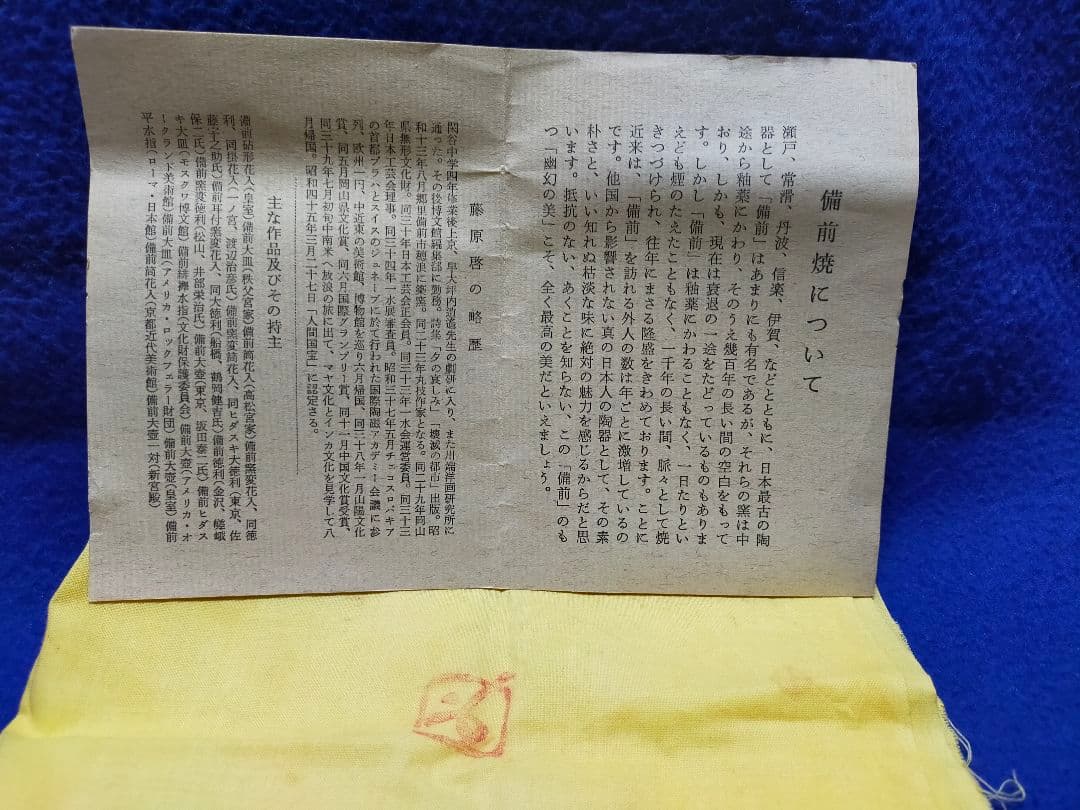 備前焼について
瀬戸、常滑、丹波、信楽、伊賀、などとともに、日本最古の陶
器として「備前」はあまりにも有名であるが、それらの窯は中
途から釉薬にかわり、そのうえ幾百年の長い間の空白をもって
おり、しかも、現在は衰退の一途をたどっているものもありま
す。しかし「備前」は釉薬にかわることもなく、一日たりとい
えども煙のたえたこともなく、一千年の長い間、脈々として焼
きつづけられ、往年にまさる隆盛をきわめております。ことに
近来は、「備前」を訪れる外人の数は年ごとに激増しているの
です。他国から影響されない真の日本人の陶器として、その素
朴さと、いい知れぬ枯淡な味に絶対の魅力を感じるからだと思
います。抵抗のない、あくことを知らない、この「備前」のも
つ「幽幻の美」こそ、全く最高の美だといえましょう。
藤原啓の略歴
閑谷中学四年修業後上京、早大坪内逍遥先生の劇研に入り、また川端洋画研究所に
通った。その後博文館編集部に勤務。詩集「夕の哀しみ」「壊滅の都市」出版。昭
和十三年八月郷里備前市穂浪に築窯。同二十三年丸技作家となる。同二十九年岡山
県無形文化財。同三十年日本工芸会正会員。同三十二年一水会運営委員。同三十三
年日本工芸会理事。同三十四年一水展審査員。昭和三十七年五月チェコスロバキア
の首都プラハとスイスのジュネーブに於て行われた国際陶磁アカデミー会議に参
列、欧州一円、中近東の美術館、博物館を巡り六月帰国、同三十八年一月山陽文化
賞、同五月岡山県文化賞、同六月国際グランプリー賞、同十一月中国文化賞受賞、
同三十九年七月初旬中南米へ放浪の旅に出て、マヤ文化とインカ文化を見学して八
月帰国。昭和四十五年三月二十七日「人間国宝」に認定さる。
主な作品及びその持主
備前砧形花入(皇室)備前大皿(秩父宮家)備前筒花入(高松宮家)備前窯変花入、同徳
利、同掛花入(一ノ宮、渡辺治彦氏)備前窯変筒花入、同ヒダスキ大徳利(東京、佐
藤宇之助氏)備前耳付窯変花入、同大徳利(船橋、鶴岡健吉氏)備前徳利(金沢、嵯峨
保二氏)備前窯変徳利(松山、井部栄治氏)備前大壷(東京、坂田泰二氏)備前ヒダス
キ大皿(モスクワ博物館)備前緋襷水指(文化財保護委員会)備前大壷(アメリカ・オ
ークランド美術館)備前大皿(アメリカ・ロックフェラー財団)備前大壷(皇室)備前
平水指(ローマ・日本館)備前筒花入(京都近代美術館)備前大壷一対(新宮殿)